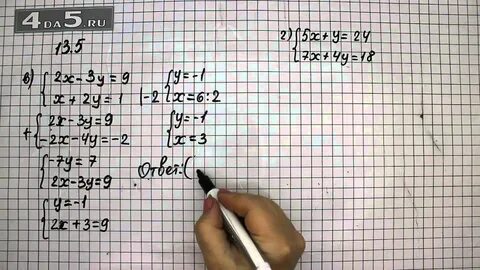 4DA5.RU
13.5
в) { 2x-3y=9
x+2y=1 |-2
+ { 2x-3y=9
-2x-4y=-2
{ -7y=7
2x-3y=9
{ y=-1
2x+3=9
{ y=-1
x=6:2
{ y=-1
x=3
Ответ: (
2) { 5x+y=24
7x+4y=18